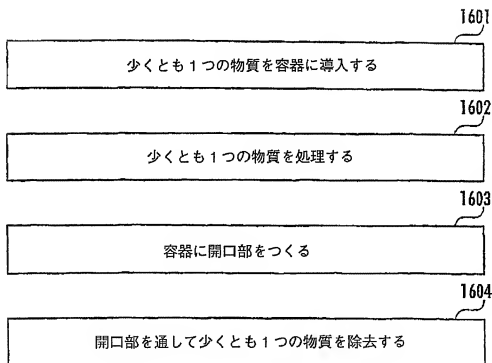 1601
少くとも1つの物質を容器に導入する
1602
少くとも1つの物質を処理する
1603
容器に開口部をつくる
1604
開口部を通して少くとも1つの物質を除去する